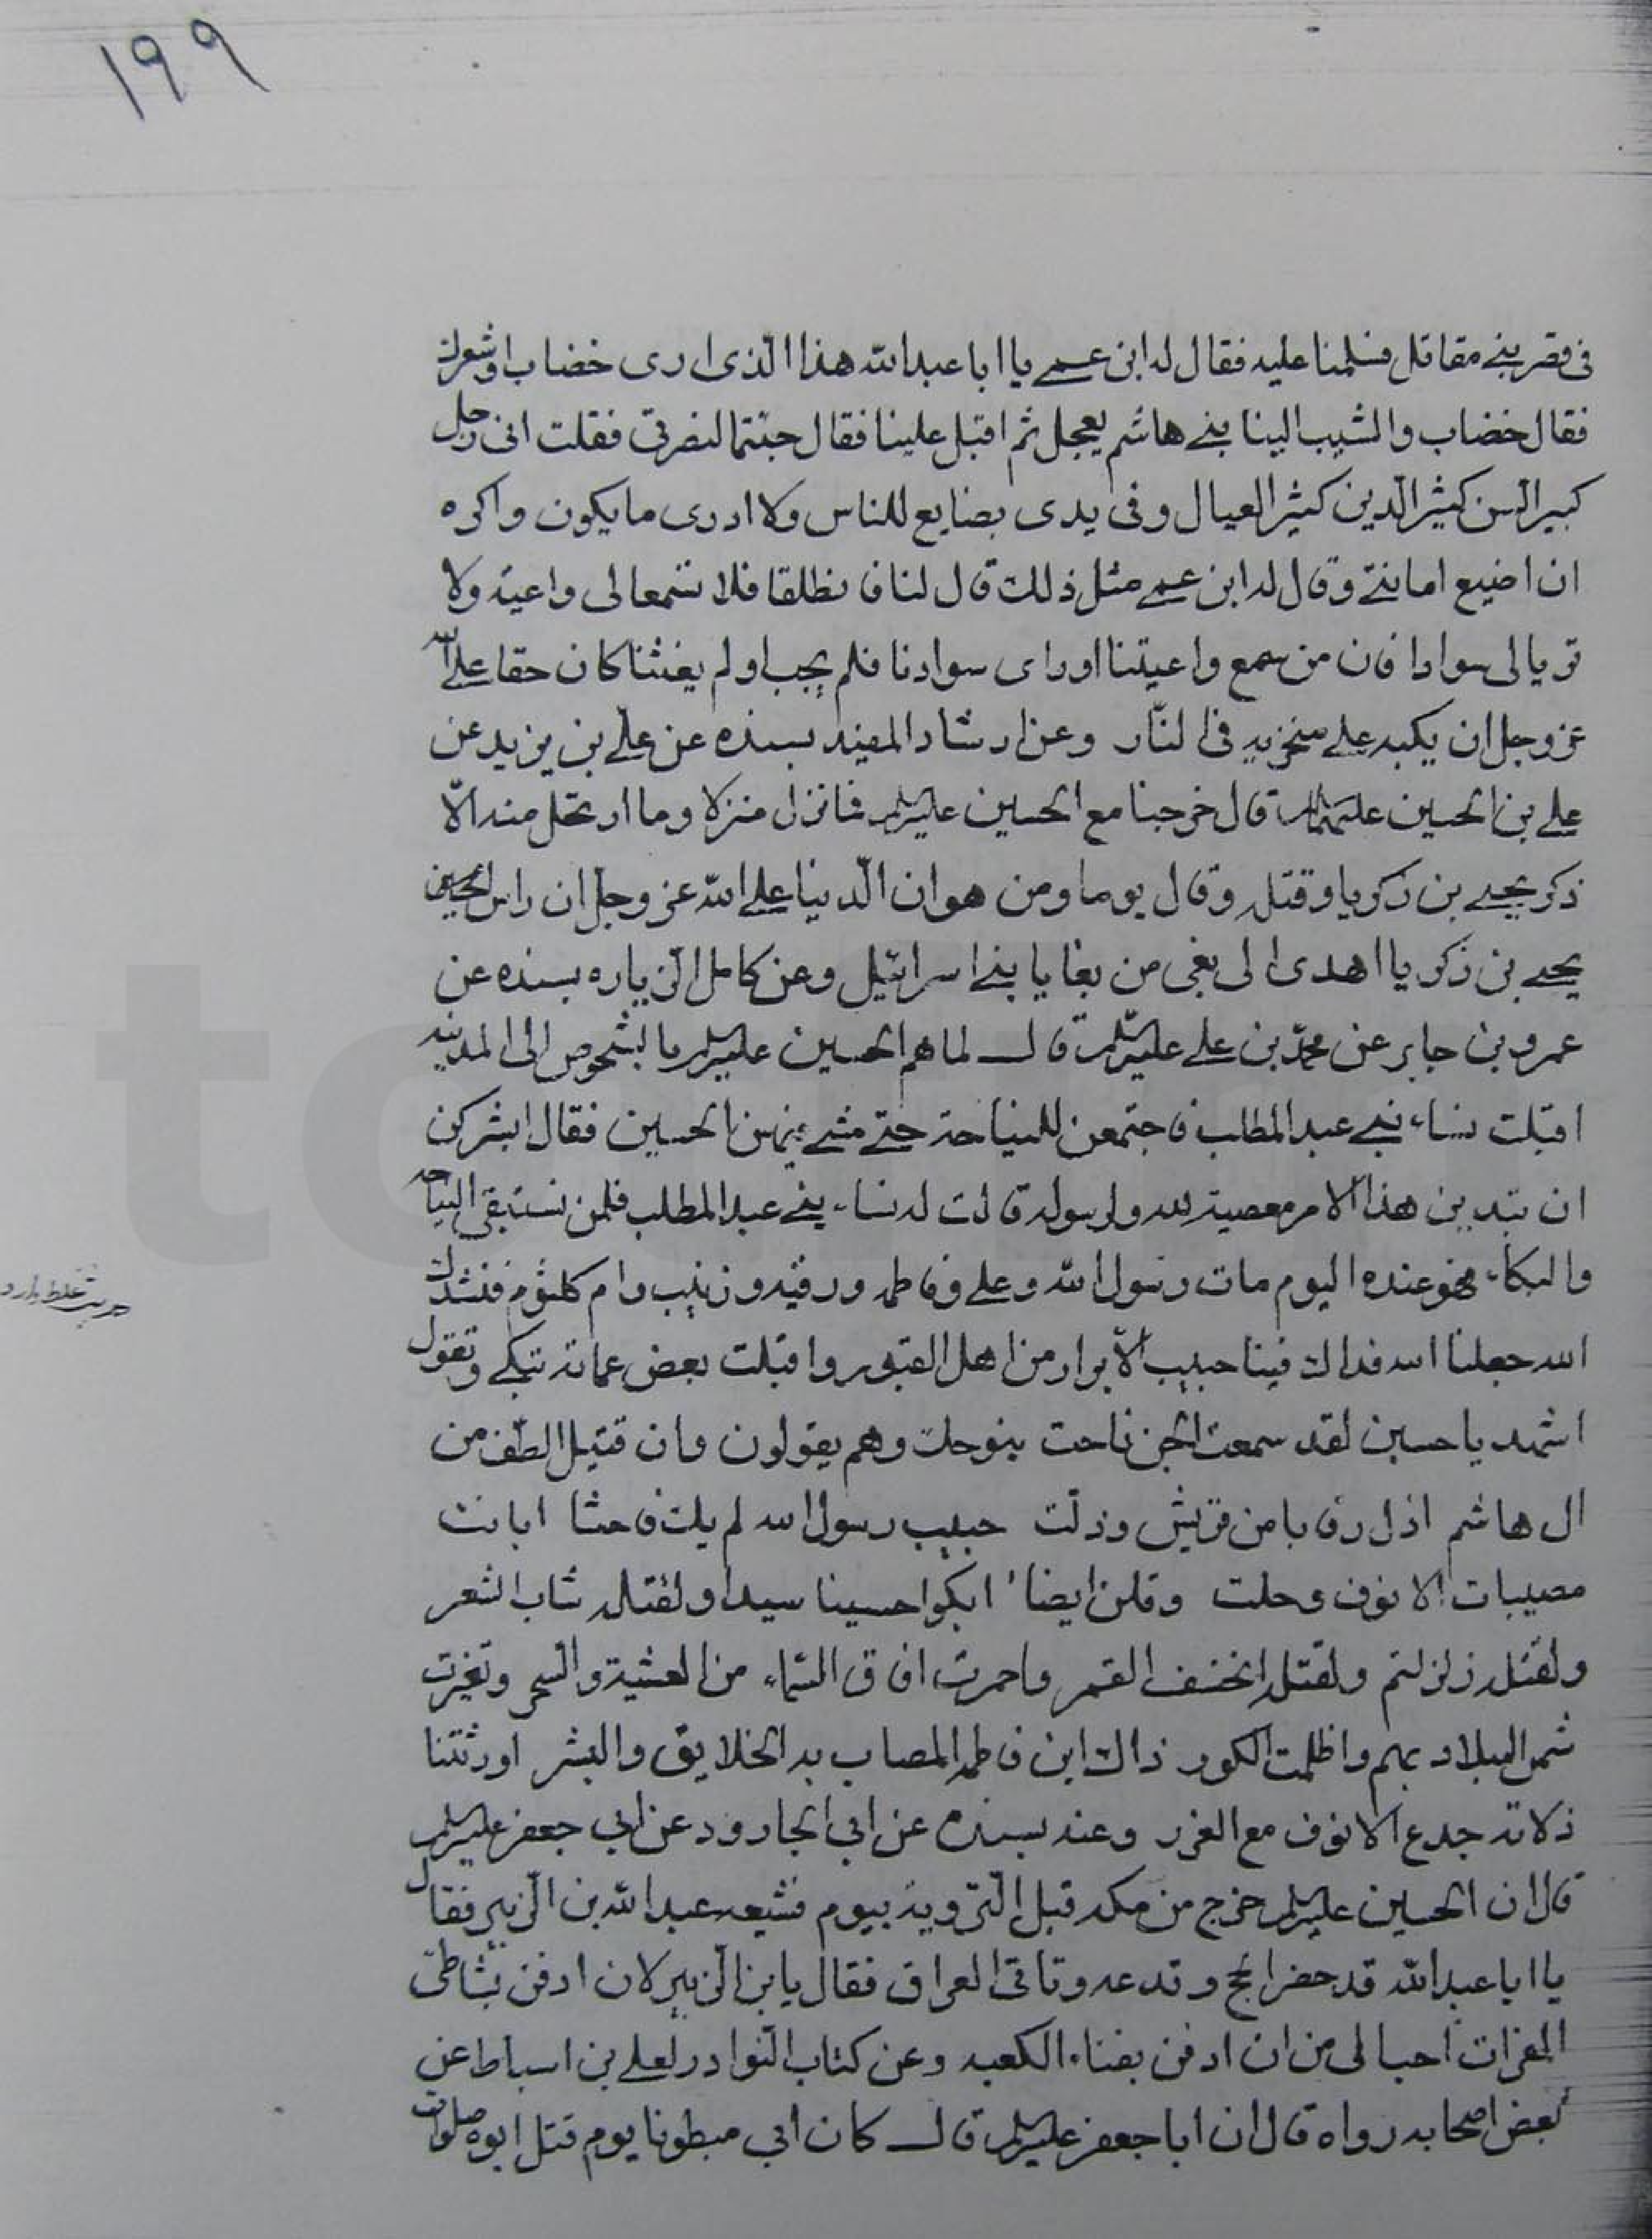 ١٩٩
فى قصر بنے مقاتل فسلمنا عليه فقال له ابن عمے يا ابا عبد الله هذا الّذى ارى خضاب او شعرك
فقال خضاب والشيب الينا بنے هاشم يعجل ثم اقبل علينا فقال جئتما لنصرتى فقلت انى رجل
كبير السن كثير الدين كثير العيال وفى يدى بضايع للناس ولا ادرى ما يكون واكره
ان اضيع امانتے وقال له ابن عمے مثل ذلك قال لنا فانطلقا فلا تسمعا لى واعية ولا
تريا لى سوادا فان من سمع واعيتنا او راى سوادنا فلم يجب او لم يغثنا كان حقا علے الله
عز وجل ان يكبه علے منخريه فى النّار وعن ارشاد المفيد بسنده عن علے بن يزيد عن
علے بن الحسين عليهما قال خرجنا مع الحسين عليه السلم فما نزل منزلا وما ارتحل منه الّا
ذكر يحيے بن زكريا وقتله وقال يوما ومن هوان الّدنيا علے الله عز وجل ان راس الحسين
يحيے بن زكريا اهدى الى بغى من بغايا بنے اسرائيل وعن كامل الزياره بسنده عن
عمرو بن جابر عن محمّد بن علے عليه السلم قال لما هم الحسين عليه السلم بالشخوص الى المدينه
اقبلت نساء بنے عبد المطلب فاجتمعن للنياحة حتے مشے فيهن الحسين فقال انشركن
ان تبدين هذا الامر معصية لله ولرسوله قالت له نساء بنے عبد المطلب فلمن نستبقى النياحه
والبكاء فهو عنده اليوم مات رسول الله وعلے وفاطمه ورقيه وزينب وام كلثوم فننشدك
الله جعلنا الله فداك فينا حبيب الابرار من اهل القبور واقبلت بعض عماته تبكے وتقول
اشهد يا حسين لقد سمعت الجن ناحت بنوحك وهم يقولون وان قتيل الطّف من
ال هاشم اذل رقابا من قريش وذلت حبيب رسول الله لم يك فاحشا ابانت
مصيبات الانوف وجلت وقلن ايضا ابكوا حسينا سيدا ولقتله شاب الشعر
ولقتله زلزلتم ولقتله انخسف القمر واحمرت افاق السماء من العشية والسحر وتغيرت
شمس البلاد بهم واظلمت الكور ذاك ابن فاطمه المصاب به الخلايق والبشر اورثتنا
ذلا به جدع الانوف مع الغرر وعنه بسنده عن ابى الجارود عن ابى جعفر عليه السلم
قال ان الحسين عليه السلم خرج من مكه قبل التّروية بيوم فشيعه عبد الله بن الزبير فقال
يا ابا عبد الله قد حضر الحج وتدعه وتاتى العراق فقال يا بن الزبير لان ادفن بشاطئ
الفرات احب الى من ان ادفن بفناء الكعبه وعن كتاب النّوادر لعلے بن اسباط عن
بعض اصحابه رواه قال ان ابا جعفر عليه السلم قال كان ابى مبطونا يوم قتل ابوه صلوات